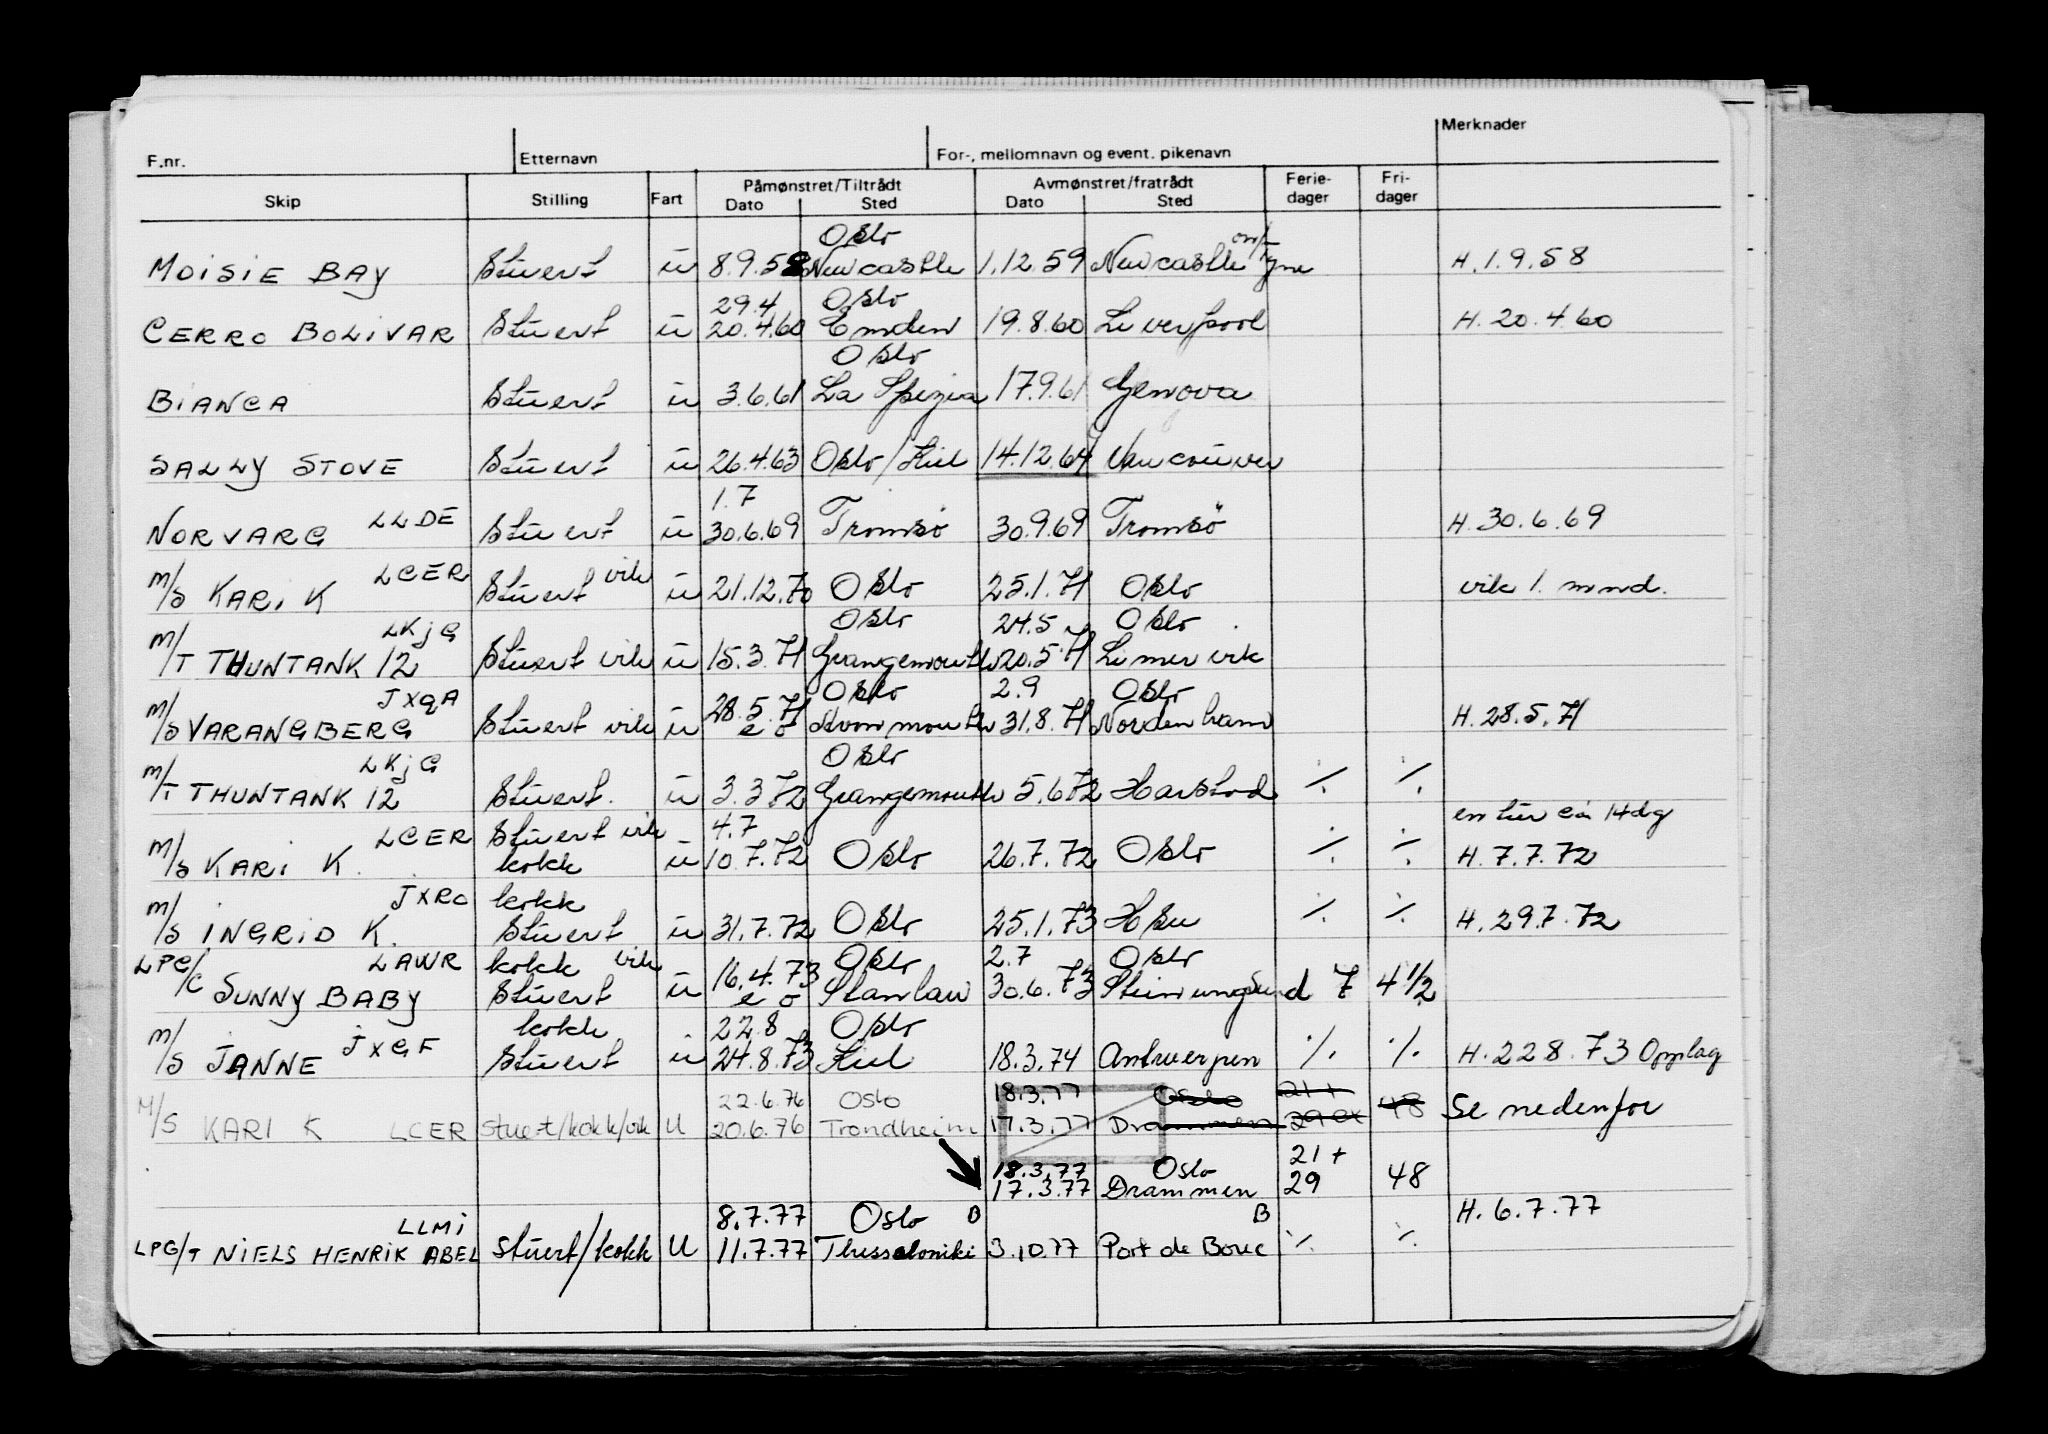 F.nr. Etternavn For-, mellomnavn og event. pikenavn Merknader
Skip Stilling Fart Påmønstret/Tiltrådt Dato Sted Avmønstret/fratrådt Dato Sted Ferie-dager Fri-dager
Oslo on/T
MOISIE BAY Stuert u 8.9.58 Newcastle 1.12.59 Newcastle yne H. 1.9.58
29.4 Oslo
CERRO BOLIVAR Stuert u 20.4.60 Emden 19.8.60 Liverpool H. 20.4.60
Oslo
BIANCA Stuert u 3.6.61 La Spezia 17.9.61 Genova
SALLY STOVE Stuert u 26.4.63 Oslo/Kiel 14.12.64 Vancouver
1.7
NORVARG LLDE Stuert u 30.6.69 Tromsø 30.9.69 Tromsö H. 30.6.69
M/S KARI K LCER Stuert vik u 21.12.70 Oslo 25.1.71 Oslo vik 1. mnd.
LKJG Oslo 24.5 Oslo
M/T THUNTANK 12 Stuert vik u 15.3.71 Grangemouth 20.5.71 Limervik
JXQA Oslo 2.9 Oslo
M/S VARANGBERG Stuert vik u 28.5.71 e o Avonmouth 31.8.71 Nordenham H. 28.5.71
LKJG Oslo
M/T THUNTANK 12 Stuert. u 3.3.72 Grangemouth 5.6.72 Harstad ⁒ ⁒
LCER Stuert vik 4.7 en tur ca 14dg
M/S KARI K. kokk u 10.7.72 Oslo 26.7.72 Oslo ⁒ ⁒ H. 7.7.72
JXRO kokk
M/S INGRID K. Stuert u 31.7.72 Oslo 25.1.73 ⁒ ⁒ H. 29.7.72
LAWR kokk vik Oslo 2.7 Oslo
LPG/C SUNNY BABY Stuert u 16.4.73 e o Stanlaw 30.6.73 Stenungsund 7 4 1/2
kokk 22.8 Oslo
M/S JANNE JXGF Stuert u 24.8.73 Kiel 18.3.74 Antwerpen ⁒ ⁒ H. 22.8.73 Opplag
22.6.76 Oslo 18.3.77 Oslo 21+ 48
M/S KARI K LCER Stuert/kokk/vik U 20.6.76 Trondheim 17.3.77 Drammen Se nedenfor
18.3.77 Oslo 21+
17.3.77 Drammen 29 48
LLMI 8.7.77 Oslo B B H. 6.7.77
LPG/T NIELS HENRIK ABEL stuert/kokk U 11.7.77 Thessaloniki 3.10.77 Port de Bouc ⁒ ⁒